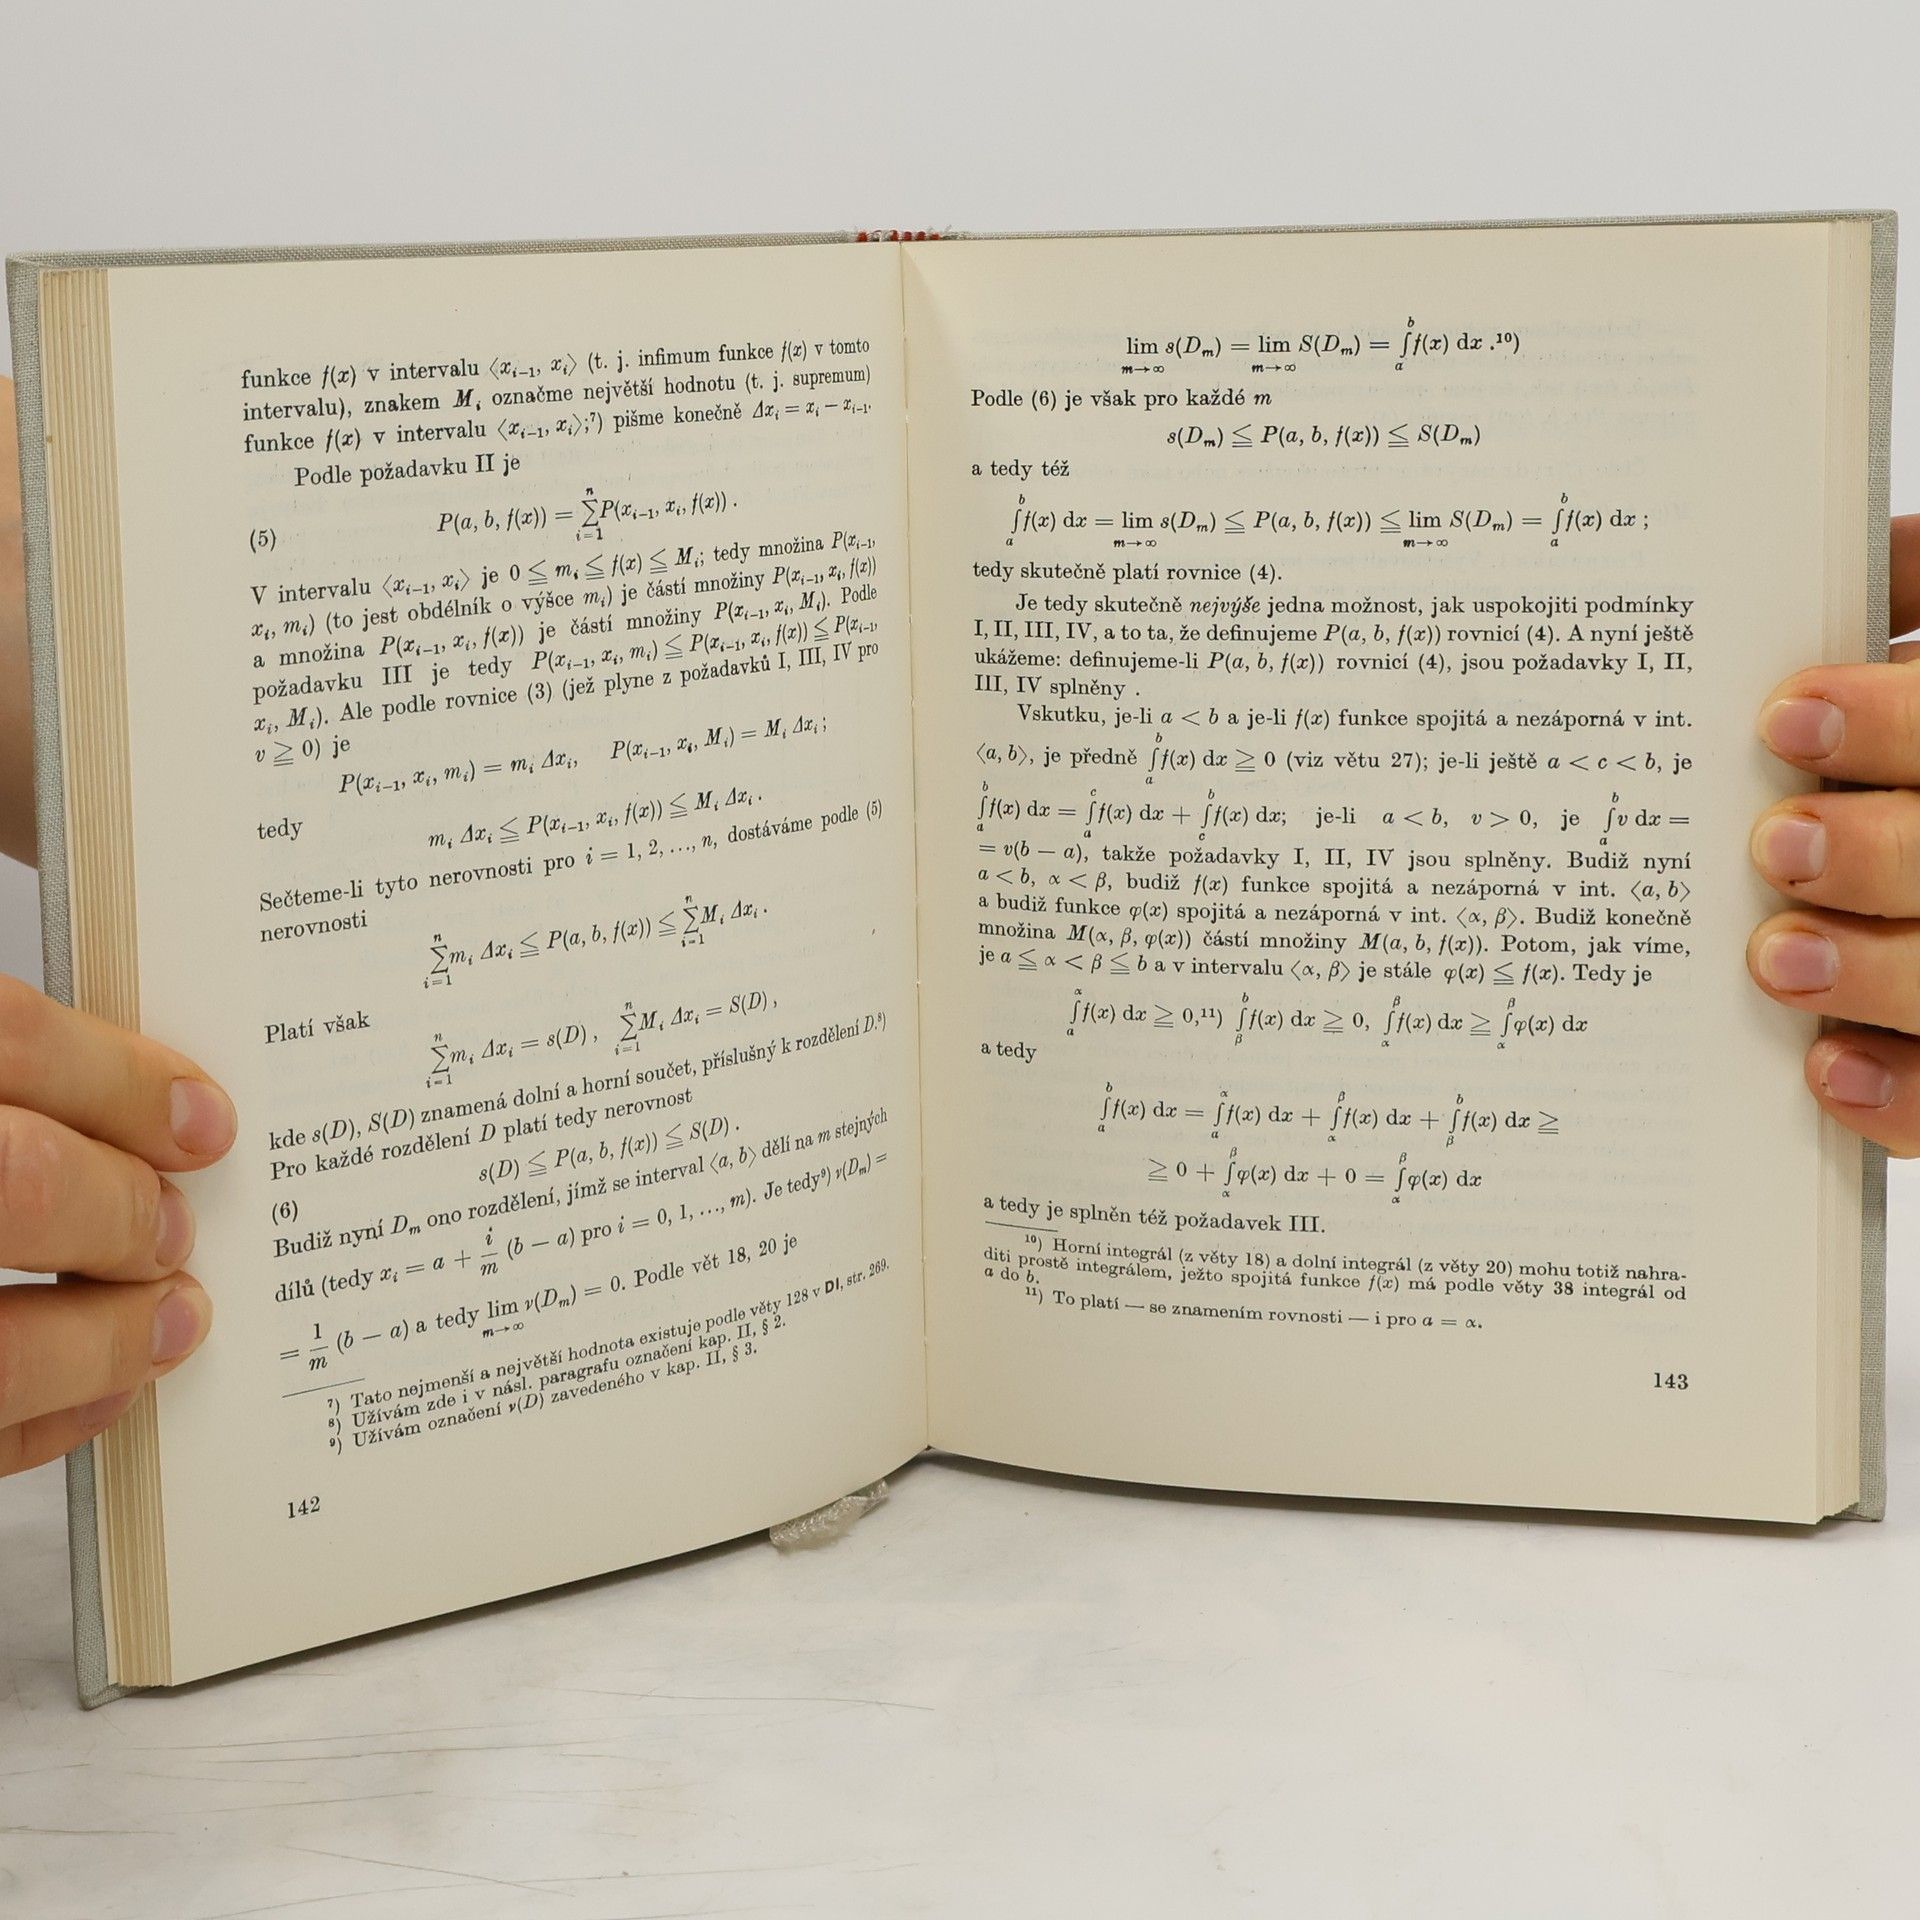 funkce f(x) v intervalu ⟨xᵢ₋₁, xᵢ⟩ (t. j. infimum funkce f(x) v tomto
intervalu), znakem Mᵢ označme největší hodnotu (t. j. supremum)
funkce f(x) v intervalu ⟨xᵢ₋₁, xᵢ⟩;⁷) pišme konečně Δxᵢ = xᵢ − xᵢ₋₁.
Podle požadavku II je
(5) P(a, b, f(x)) = ∑ᵢ₌₁ⁿ P(xᵢ₋₁, xᵢ, f(x)) .
V intervalu ⟨xᵢ₋₁, xᵢ⟩ je 0 ≦ mᵢ ≦ f(x) ≦ Mᵢ; tedy množina P(xᵢ₋₁,
xᵢ, mᵢ) (to jest obdélník o výšce mᵢ) je částí množiny P(xᵢ₋₁, xᵢ, f(x))
a množina P(xᵢ₋₁, xᵢ, f(x)) je částí množiny P(xᵢ₋₁, xᵢ, Mᵢ). Podle
požadavku III je tedy P(xᵢ₋₁, xᵢ, mᵢ) ≦ P(xᵢ₋₁, xᵢ, f(x)) ≦ P(xᵢ₋₁,
xᵢ, Mᵢ). Ale podle rovnice (3) (jež plyne z požadavků I, III, IV pro
v ≧ 0) je
P(xᵢ₋₁, xᵢ, mᵢ) = mᵢ Δxᵢ, P(xᵢ₋₁, xᵢ, Mᵢ) = Mᵢ Δxᵢ ;
tedy
mᵢ Δxᵢ ≦ P(xᵢ₋₁, xᵢ, f(x)) ≦ Mᵢ Δxᵢ .
Sečteme-li tyto nerovnosti pro i = 1, 2, ..., n, dostáváme podle (5)
nerovnosti
∑ᵢ₌₁ⁿ mᵢ Δxᵢ ≦ P(a, b, f(x)) ≦ ∑ᵢ₌₁ⁿ Mᵢ Δxᵢ .
Platí však
∑ᵢ₌₁ⁿ mᵢ Δxᵢ = s(D) , ∑ᵢ₌₁ⁿ Mᵢ Δxᵢ = S(D) ,
kde s(D), S(D) znamená dolní a horní součet, příslušný k rozdělení D.⁸)
Pro každé rozdělení D platí tedy nerovnost
(6) s(D) ≦ P(a, b, f(x)) ≦ S(D) .
Budiž nyní Dₘ ono rozdělení, jímž se interval ⟨a, b⟩ dělí na m stejných
dílů (tedy xᵢ = a + i/m (b − a) pro i = 0, 1, ..., m). Je tedy⁹) ν(Dₘ) =
= 1/m (b − a) a tedy lim m→∞ ν(Dₘ) = 0. Podle vět 18, 20 je
⁷) Tato nejmenší a největší hodnota existuje podle věty 128 v DI, str. 269.
⁸) Užívám zde i v násl. paragrafu označení kap. II, § 2.
⁹) Užívám označení ν(D) zavedeného v kap. II, § 3.
142
lim m→∞ s(Dₘ) = lim m→∞ S(Dₘ) = ∫ₐᵇ f(x) dx .¹⁰)
Podle (6) je však pro každé m
s(Dₘ) ≦ P(a, b, f(x)) ≦ S(Dₘ)
a tedy též
∫ₐᵇ f(x) dx = lim m→∞ s(Dₘ) ≦ P(a, b, f(x)) ≦ lim m→∞ S(Dₘ) = ∫ₐᵇ f(x) dx ;
tedy skutečně platí rovnice (4).
Je tedy skutečně nejvýše jedna možnost, jak uspokojiti podmínky
I, II, III, IV, a to ta, že definujeme P(a, b, f(x)) rovnicí (4). A nyní ještě
ukážeme: definujeme-li P(a, b, f(x)) rovnicí (4), jsou požadavky I, II,
III, IV splněny .
Vskutku, je-li a < b a je-li f(x) funkce spojitá a nezáporná v int.
⟨a, b⟩, je předně ∫ₐᵇ f(x) dx ≧ 0 (viz větu 27); je-li ještě a < c < b, je
∫ₐᵇ f(x) dx = ∫ₐᶜ f(x) dx + ∫_c^b f(x) dx; je-li a < b, v > 0, je ∫ₐᵇ v dx =
= v(b − a), takže požadavky I, II, IV jsou splněny. Budiž nyní
a < b, α < β, budiž f(x) funkce spojitá a nezáporná v int. ⟨a, b⟩
a budiž funkce φ(x) spojitá a nezáporná v int. ⟨α, β⟩. Budiž konečně
množina M(α, β, φ(x)) částí množiny M(a, b, f(x)). Potom, jak víme,
je a ≦ α < β ≦ b a v intervalu ⟨α, β⟩ je stále φ(x) ≦ f(x). Tedy je
∫_a^α f(x) dx ≧ 0,¹¹) ∫_β^b f(x) dx ≧ 0, ∫_α^β f(x) dx ≧ ∫_α^β φ(x) dx
a tedy
∫_a^b f(x) dx = ∫_a^α f(x) dx + ∫_α^β f(x) dx + ∫_β^b f(x) dx ≧
≧ 0 + ∫_α^β φ(x) dx + 0 = ∫_α^β φ(x) dx
a tedy je splněn též požadavek III.
¹⁰) Horní integrál (z věty 18) a dolní integrál (z věty 20) mohu totiž nahra-
diti prostě integrálem, ježto spojitá funkce f(x) má podle věty 38 integrál od
a do b.
¹¹) To platí — se znamením rovnosti — i pro a = α.
143